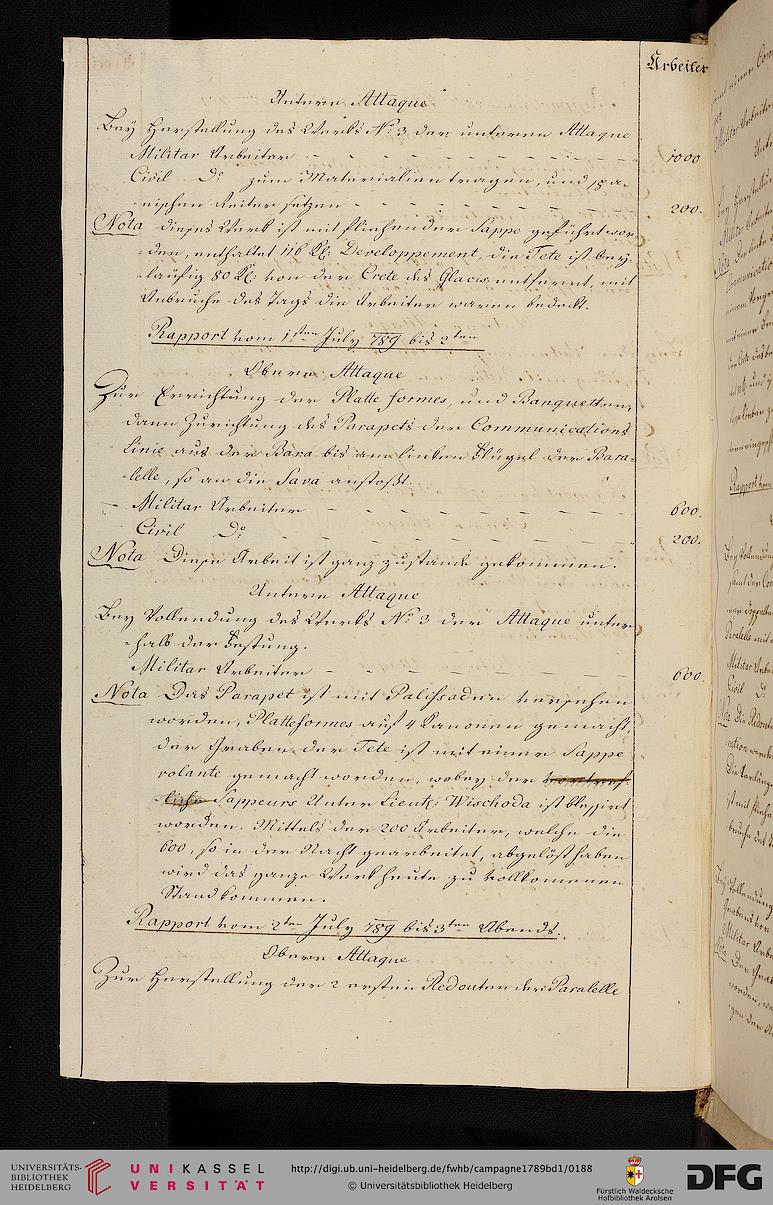 Arbeiter
Untere Attaque
Bey Herstellung des Werks No 3 der unteren Attaque
Militar Arbeiter - - - - - - - - 1000
Civil Do zum Materialien tragen, und spa-
nischen Reiter setzen - - - - - - - 200.
Nota dieses Werk ist mit fliehender Sappe geführt wor-
den, enthaltet 116 Kl: Developpement, die Tete ist bey-
läufig 80 Kl: von der Crete des Glacis entfernt, mit
Anbruche des Tags die Arbeiter waren bedeckt.
Rapport vom 1sten July 789 bis 2ten
Obere Attaque
Zur Errichtung der Platte formes, und Banquetten,
dann Zurichtung des Parapets der Communications
Linie aus der Bara bis am linken Flügel der Para-
lelle, so an die Sava anstoßt.
- Militar Arbeiter - - - - - - - 600.
Civil Do - - - - - - - - 200.
Nota Diese Arbeit ist ganz zustande gekommen.
Untere Attaque
Bey Vollendung des Werks No 3 der Attaque unter-
halb der Festung.
Militar Arbeiter - - - - - - - 600.
Nota Das Parapet ist mit Palissaden versehen
worden, Platteformes auf 4 Kanonen gemacht,
der Graben der Tete ist mit einer Sappe
volante gemacht worden, wobey der
Sappeurs Unter Lieut: Wischoda ist blessirt
worden. Mittels der 200 Arbeiter, welche die
600, so in der Nacht gearbeitet, abgelöst haben
wird das ganze Werk heute zu vollkomenen
Stand kommen.
Rapport vom 2ten July 789 bis 3ten Abends.
Obere Attaque
Zur Herstellung der 2 ersten Redouten der Paralelle
UNIVERSITÄTS-
BIBLIOTHEK
HEIDELBERG
UNIKASSEL
VERSITÄT
http://digi.ub.uni-heidelberg.de/fwhb/campagne1789bd1/0188
© Universitätsbibliothek Heidelberg
Fürstlich Waldecksche
Hofbibliothek Arolsen
DFG